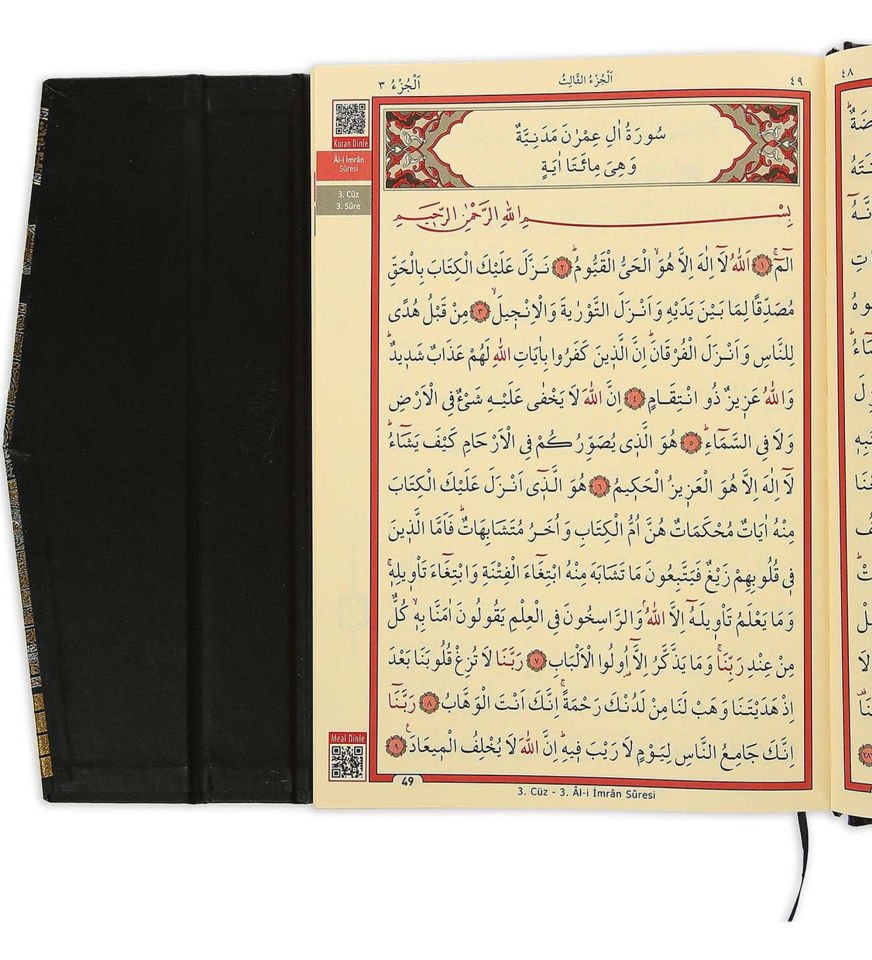 اَلْجُزْءُ ٣
اَلْجُزْءُ الثَّالِثُ
٤٩
٤٨
Kuran Dinle
Âl-i İmrân
Sûresi
3. Cüz
3. Sûre
سُورَةُ اٰلِ عِمْرٰنَ مَدَنِيَّةٌ
وَهِيَ مِائَتَا اٰيَةٍ
بِسْمِ اللهِ الرَّحْمٰنِ الرَّحِيمِ
الٓمٓۚ ﴿١﴾ اَللهُ لَٓا اِلٰهَ اِلَّا هُوَۙ الْحَيُّ الْقَيُّومُۜ ﴿٢﴾ نَزَّلَ عَلَيْكَ الْكِتَابَ بِالْحَقِّ
مُصَدِّقًا لِمَا بَيْنَ يَدَيْهِ وَاَنْزَلَ التَّوْرٰيةَ وَالْاِنْج۪يلَۙ ﴿٣﴾ مِنْ قَبْلُ هُدًى
لِلنَّاسِ وَاَنْزَلَ الْفُرْقَانَۜ اِنَّ الَّذ۪ينَ كَفَرُوا بِاٰيَاتِ اللهِ لَهُمْ عَذَابٌ شَد۪يدٌۜ
وَاللهُ عَز۪يزٌ ذُو انْتِقَامٍ ﴿٤﴾ اِنَّ اللهَ لَا يَخْفٰى عَلَيْهِ شَيْءٌ فِي الْاَرْضِ
وَلَا فِي السَّمَٓاءِۜ ﴿٥﴾ هُوَ الَّذ۪ي يُصَوِّرُكُمْ فِي الْاَرْحَامِ كَيْفَ يَشَٓاءُۜ
لَٓا اِلٰهَ اِلَّا هُوَ الْعَز۪يزُ الْحَك۪يمُ ﴿٦﴾ هُوَ الَّذ۪ٓي اَنْزَلَ عَلَيْكَ الْكِتَابَ
مِنْهُ اٰيَاتٌ مُحْكَمَاتٌ هُنَّ اُمُّ الْكِتَابِ وَاُخَرُ مُتَشَابِهَاتٌۜ فَاَمَّا الَّذ۪ينَ
ف۪ي قُلُوبِهِمْ زَيْغٌ فَيَتَّبِعُونَ مَا تَشَابَهَ مِنْهُ ابْتِغَٓاءَ الْفِتْنَةِ وَابْتِغَٓاءَ تَأْو۪يلِه۪ۚ
وَمَا يَعْلَمُ تَأْو۪يلَهُٓ اِلَّا اللهُۢ وَالرَّاسِخُونَ فِي الْعِلْمِ يَقُولُونَ اٰمَنَّا بِه۪ۙ كُلٌّ
مِنْ عِنْدِ رَبِّنَاۚ وَمَا يَذَّكَّرُ اِلَّٓا اُو۬لُوا الْاَلْبَابِ ﴿٧﴾ رَبَّنَا لَا تُزِغْ قُلُوبَنَا بَعْدَ
اِذْ هَدَيْتَنَا وَهَبْ لَنَا مِنْ لَدُنْكَ رَحْمَةًۚ اِنَّكَ اَنْتَ الْوَهَّابُ ﴿٨﴾ رَبَّنَٓا
اِنَّكَ جَامِعُ النَّاسِ لِيَوْمٍ لَا رَيْبَ ف۪يهِۜ اِنَّ اللهَ لَا يُخْلِفُ الْم۪يعَادَ۟ ﴿٩﴾
Meal Dinle
49
3. Cüz - 3. Âl-i İmrân Sûresi